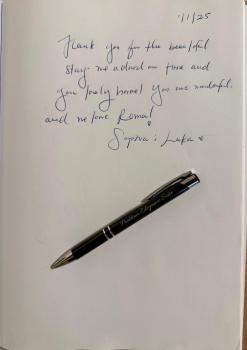 1/1/25
Thank you for the beautiful
stay we adored our time and
your lovely home! You are wonderful.
and we love Roma!
Luka